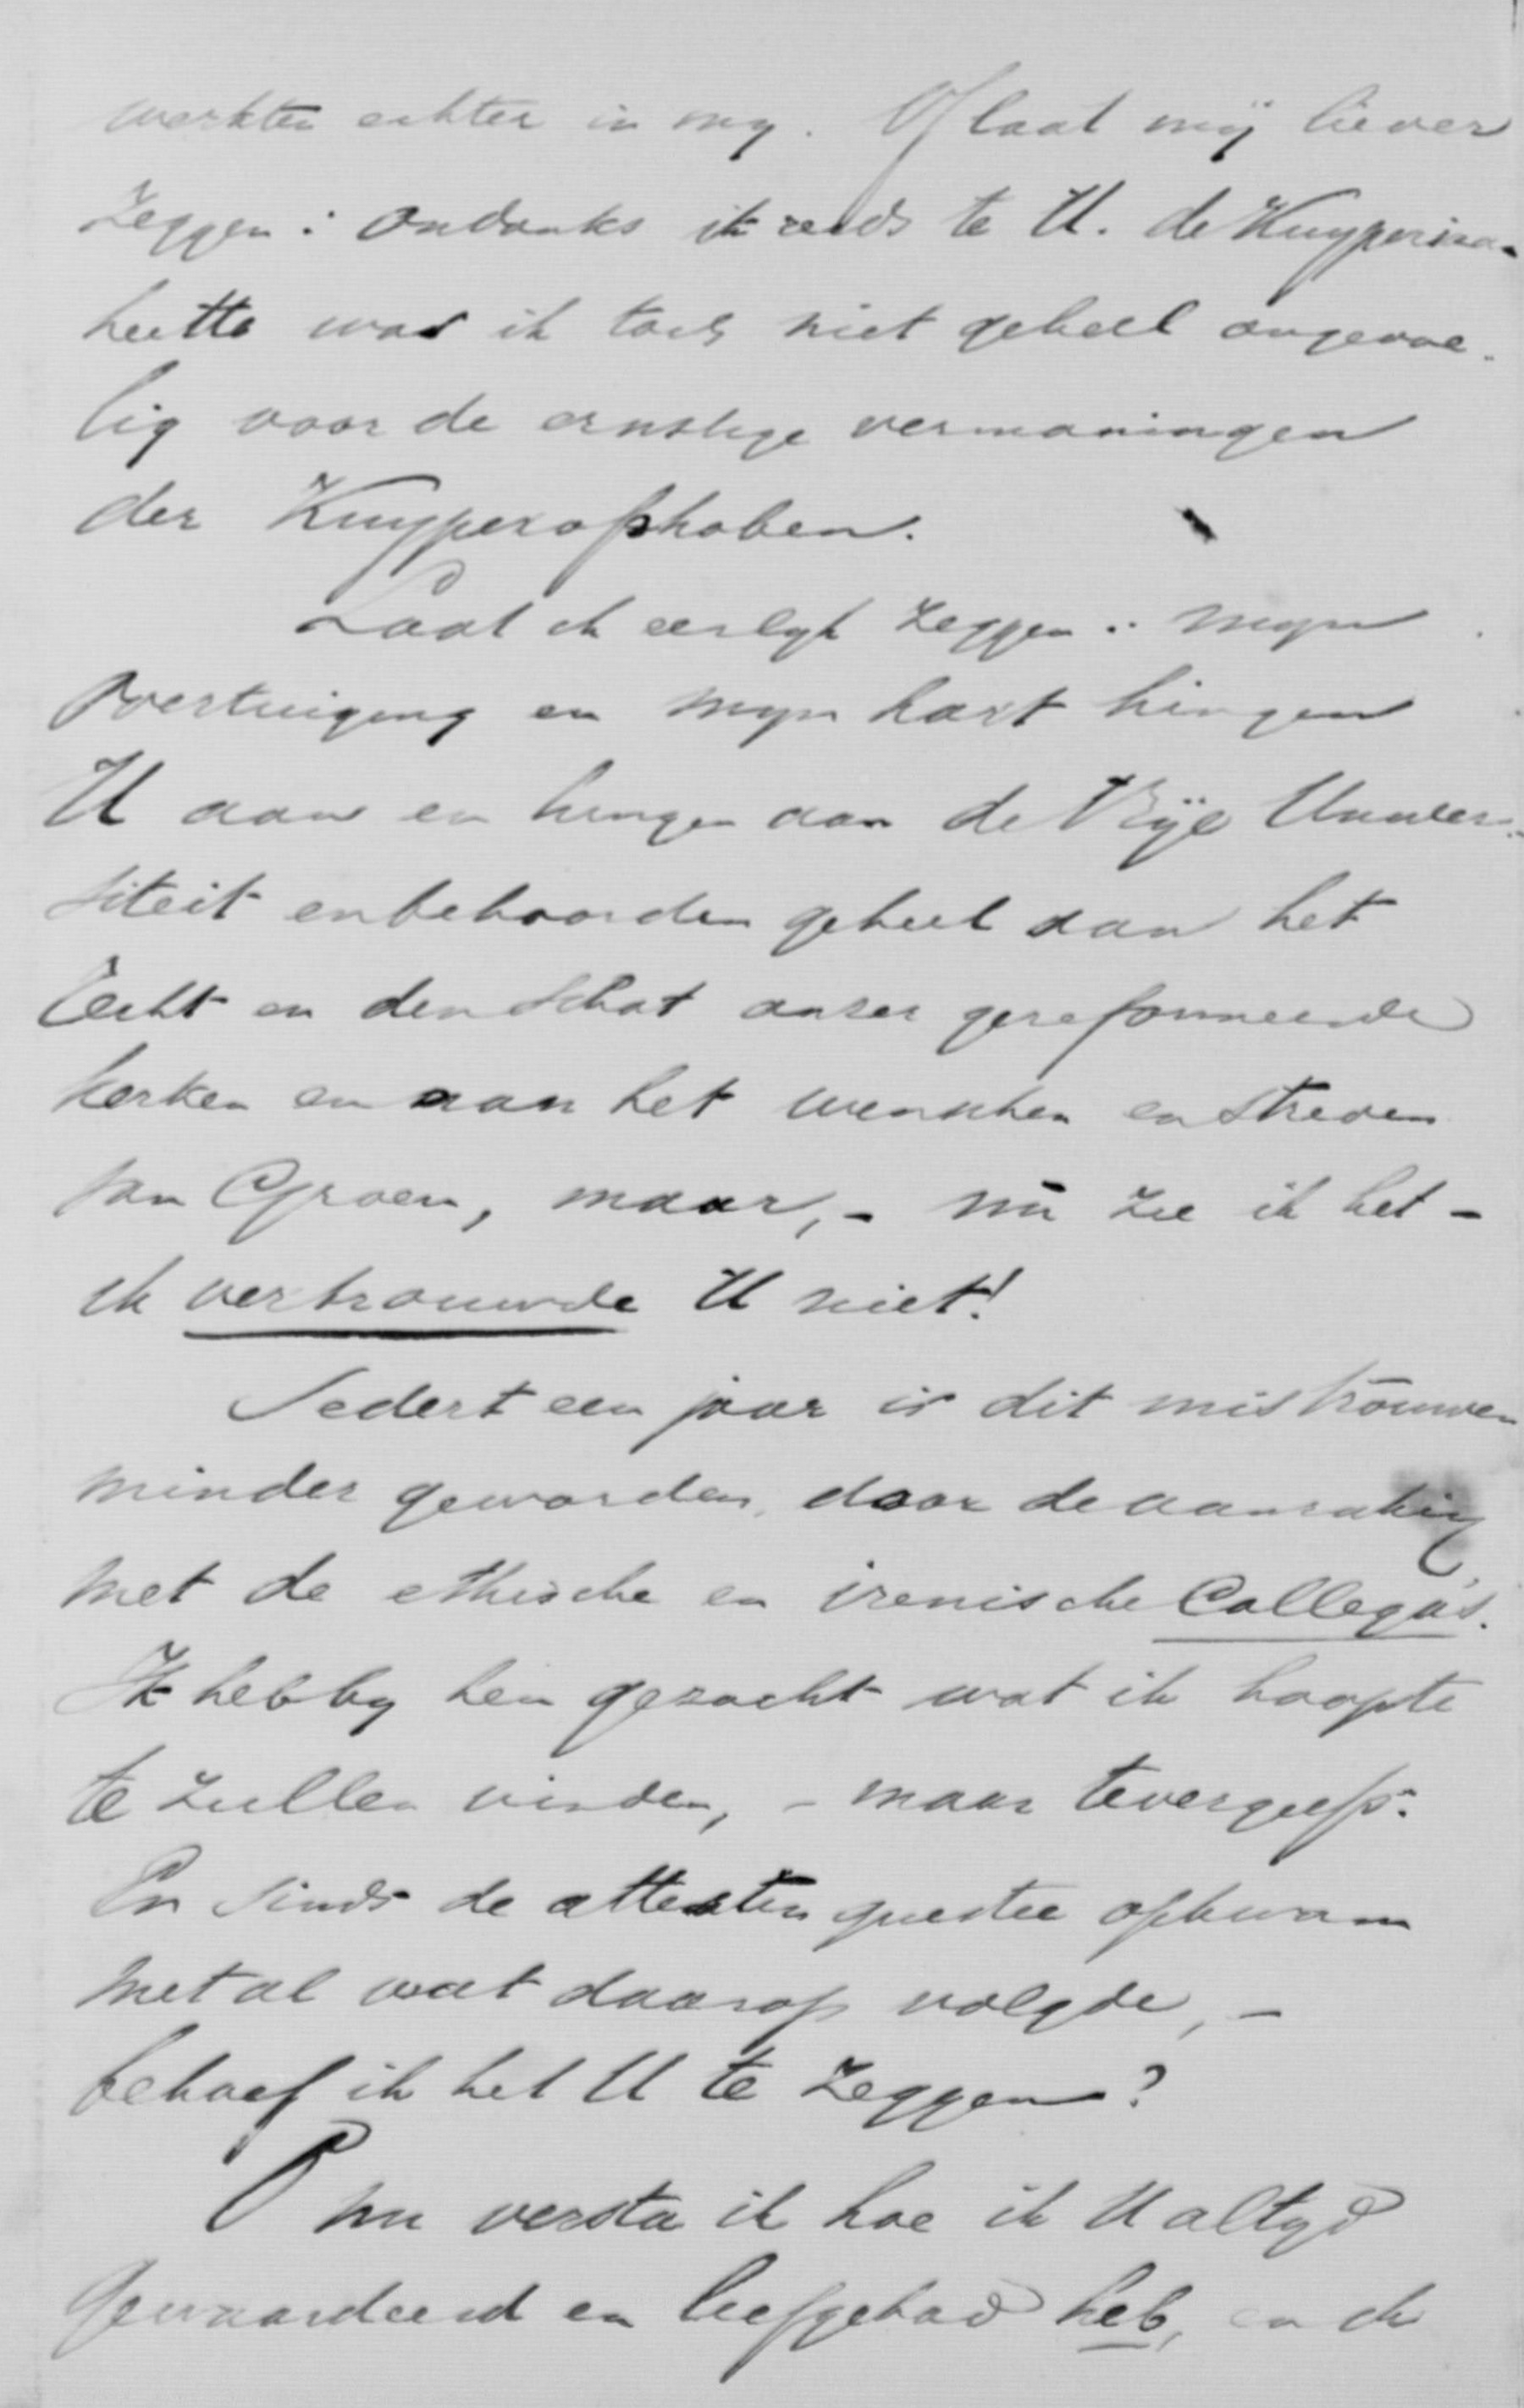 werkten echter in my. Of laat mij liever
zeggen: ondanks ik reeds te U. de Kuyperiaan
heette was ik toch niet geheel ongevoe-
lig voor de ernstige vermaningen
der Kuyperophoben.
Laat ik eerlyk zeggen: myn
overtuiging en myn hart hingen
U aan en hingen aan de Vrije Univer-
siteit en behoorden geheel aan het
recht en den schat onzer gereformeerde
kerken en aan het wenschen en streven
van Groen, maar, - nu zie ik het -
ik vertrouwde U niet!
Sedert een jaar is dit mistrouwen
minder geworden, door de aanraking
met de ethische en irenische Collega's.
Ik heb by hen gezocht wat ik hoopte
te zullen vinden, - maar tevergeefs.
En sinds de attesten questie opkwam
met al wat daarop volgde, -
behoef ik het U te zeggen?
O nu versta ik hoe ik U altyd
gewaardeerd en liefgehad heb, en ik